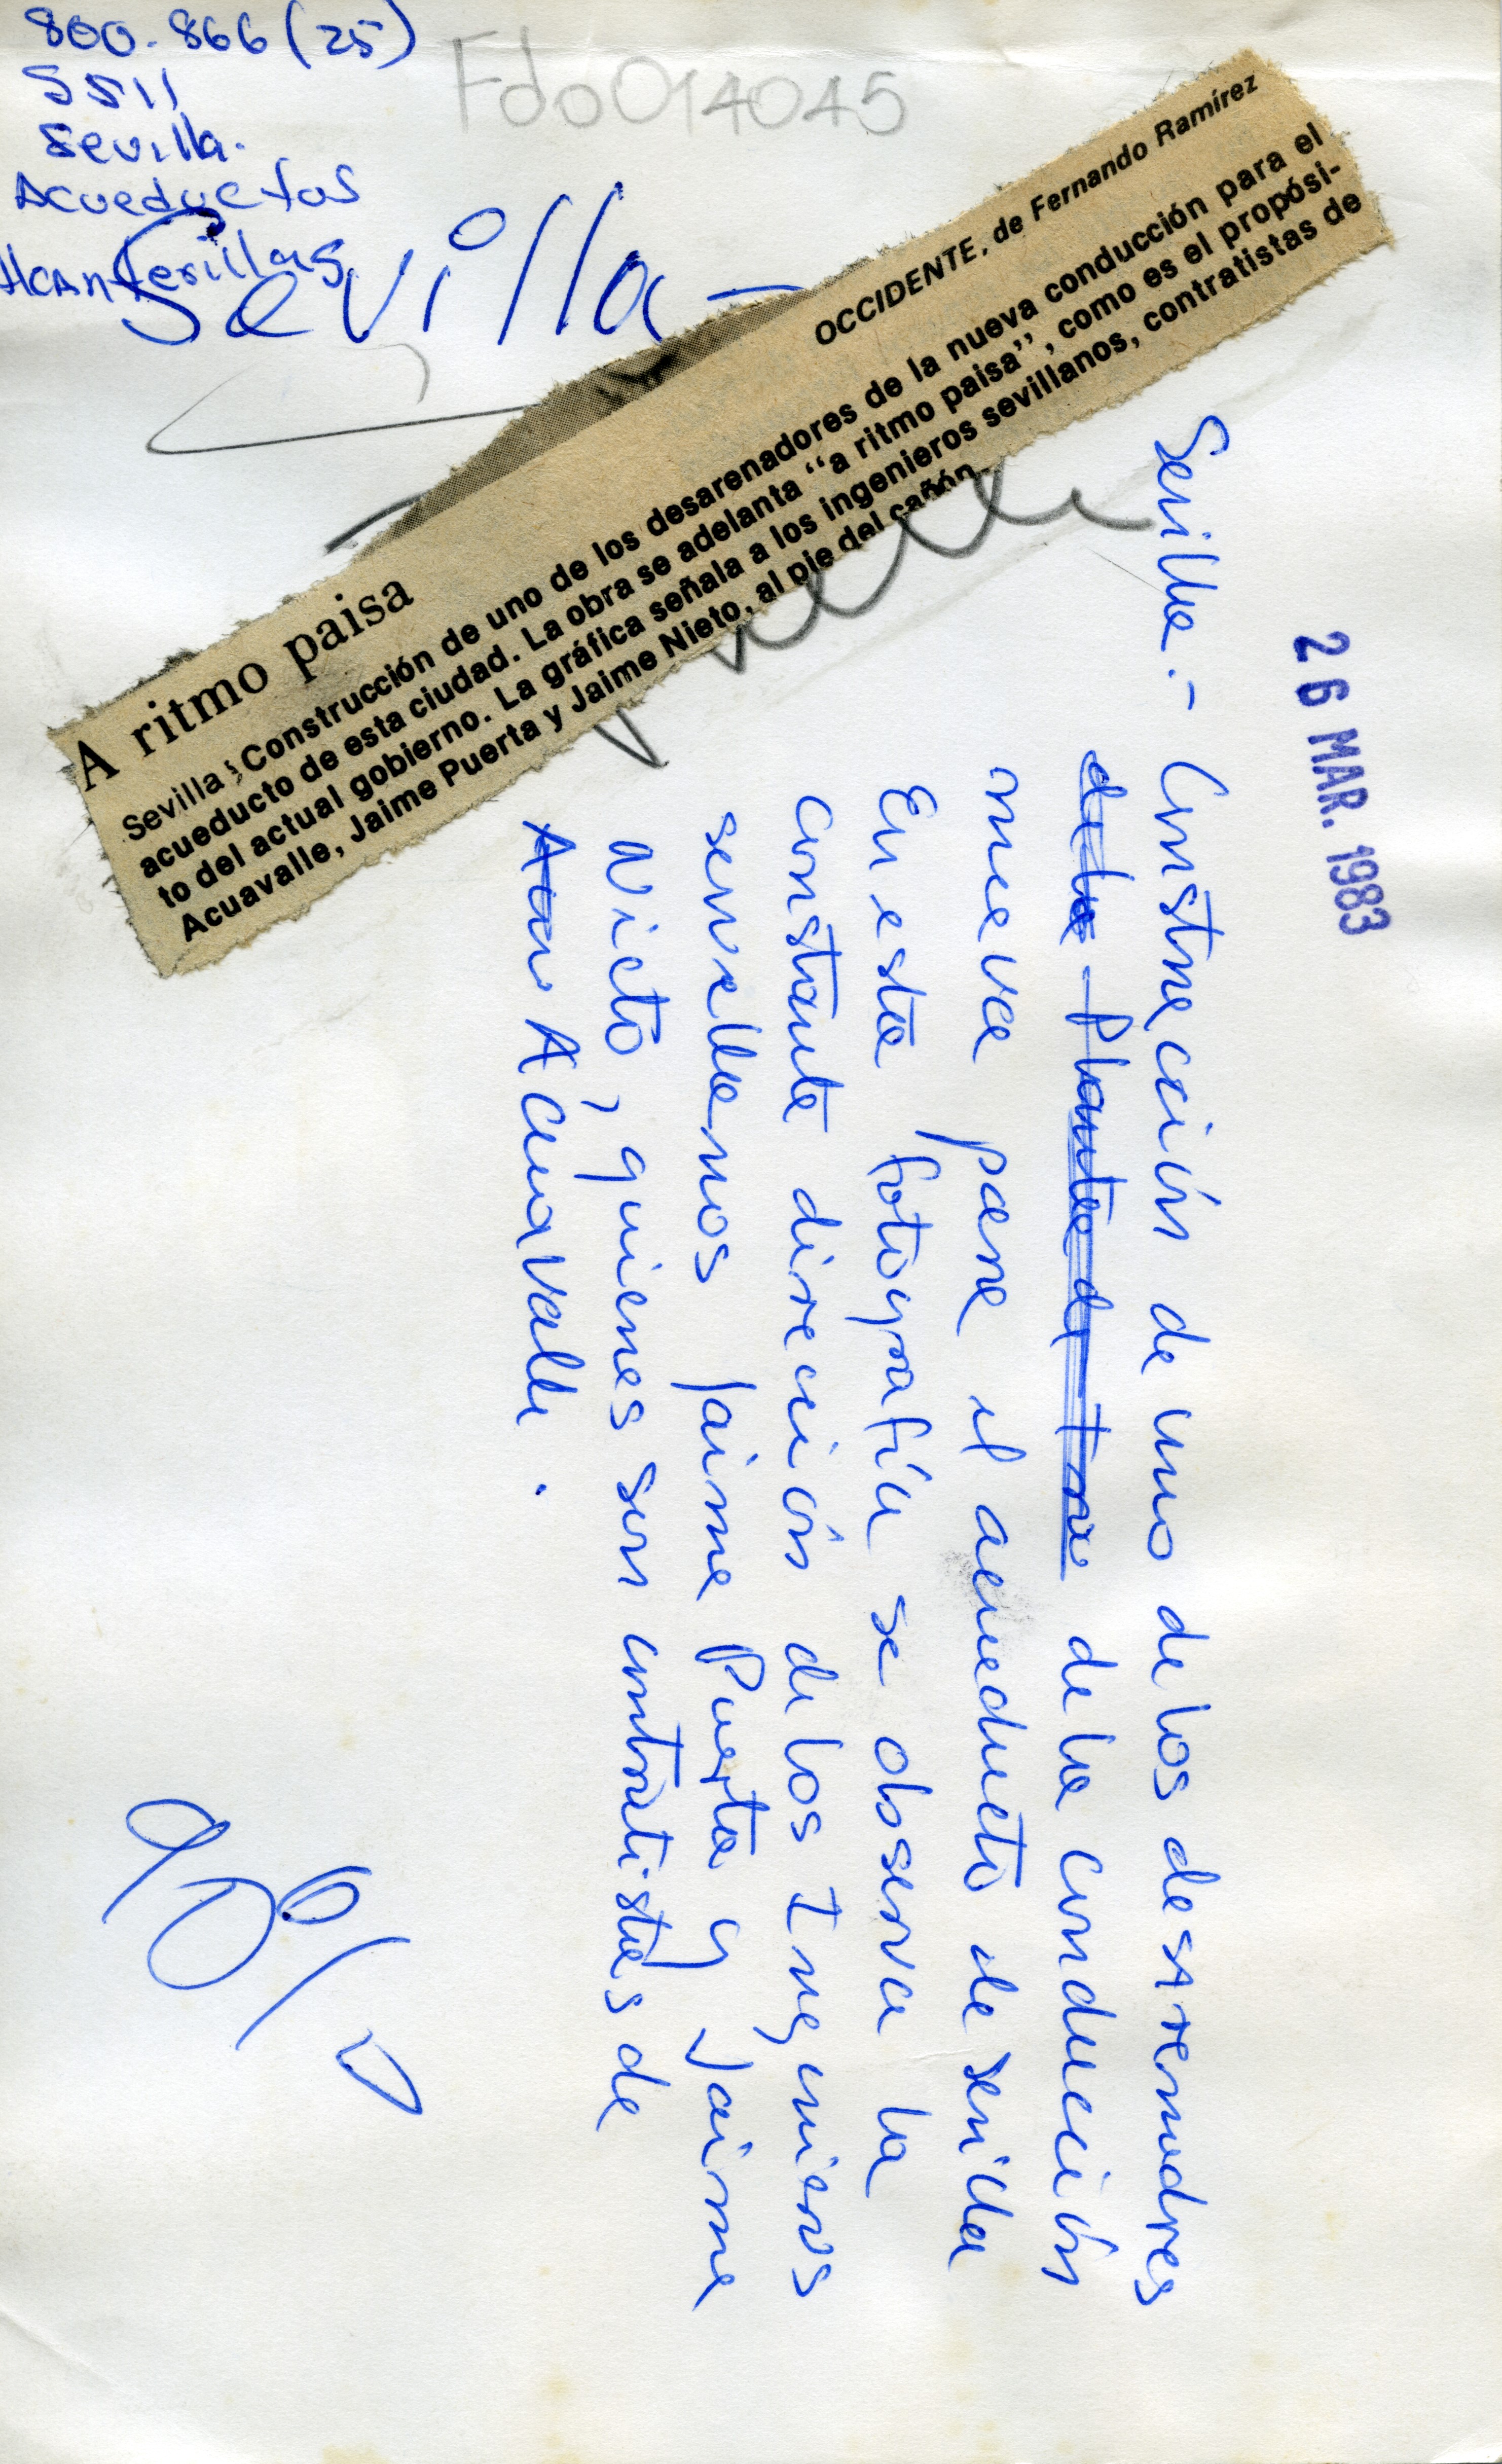 800-866 (25)
SS11
Sevilla.
Acueductos
Alcantarillas
Fdo014045
Sevilla -
OCCIDENTE, de Fernando Ramírez
A ritmo paisa
Sevilla; Construcción de uno de los desarenadores de la nueva conducción para el
acueducto de esta ciudad. La obra se adelanta “a ritmo paisa”, como es el propósi-
to del actual gobierno. La gráfica señala a los ingenieros sevillanos, contratistas de
Acuavalle, Jaime Puerta y Jaime Nieto, al pie del cañón.
26 MAR. 1983
Sevilla.- Construcción de uno de los desarenadores
de la Planta de Tra de la conducción
nueva para el acueducto de Sevilla
En esta fotografía se observa la
constante dirección de los Ingenieros
sevillanos Jaime Puerta y Jaime
Nieto, quienes son contratistas de
Acuavalle.